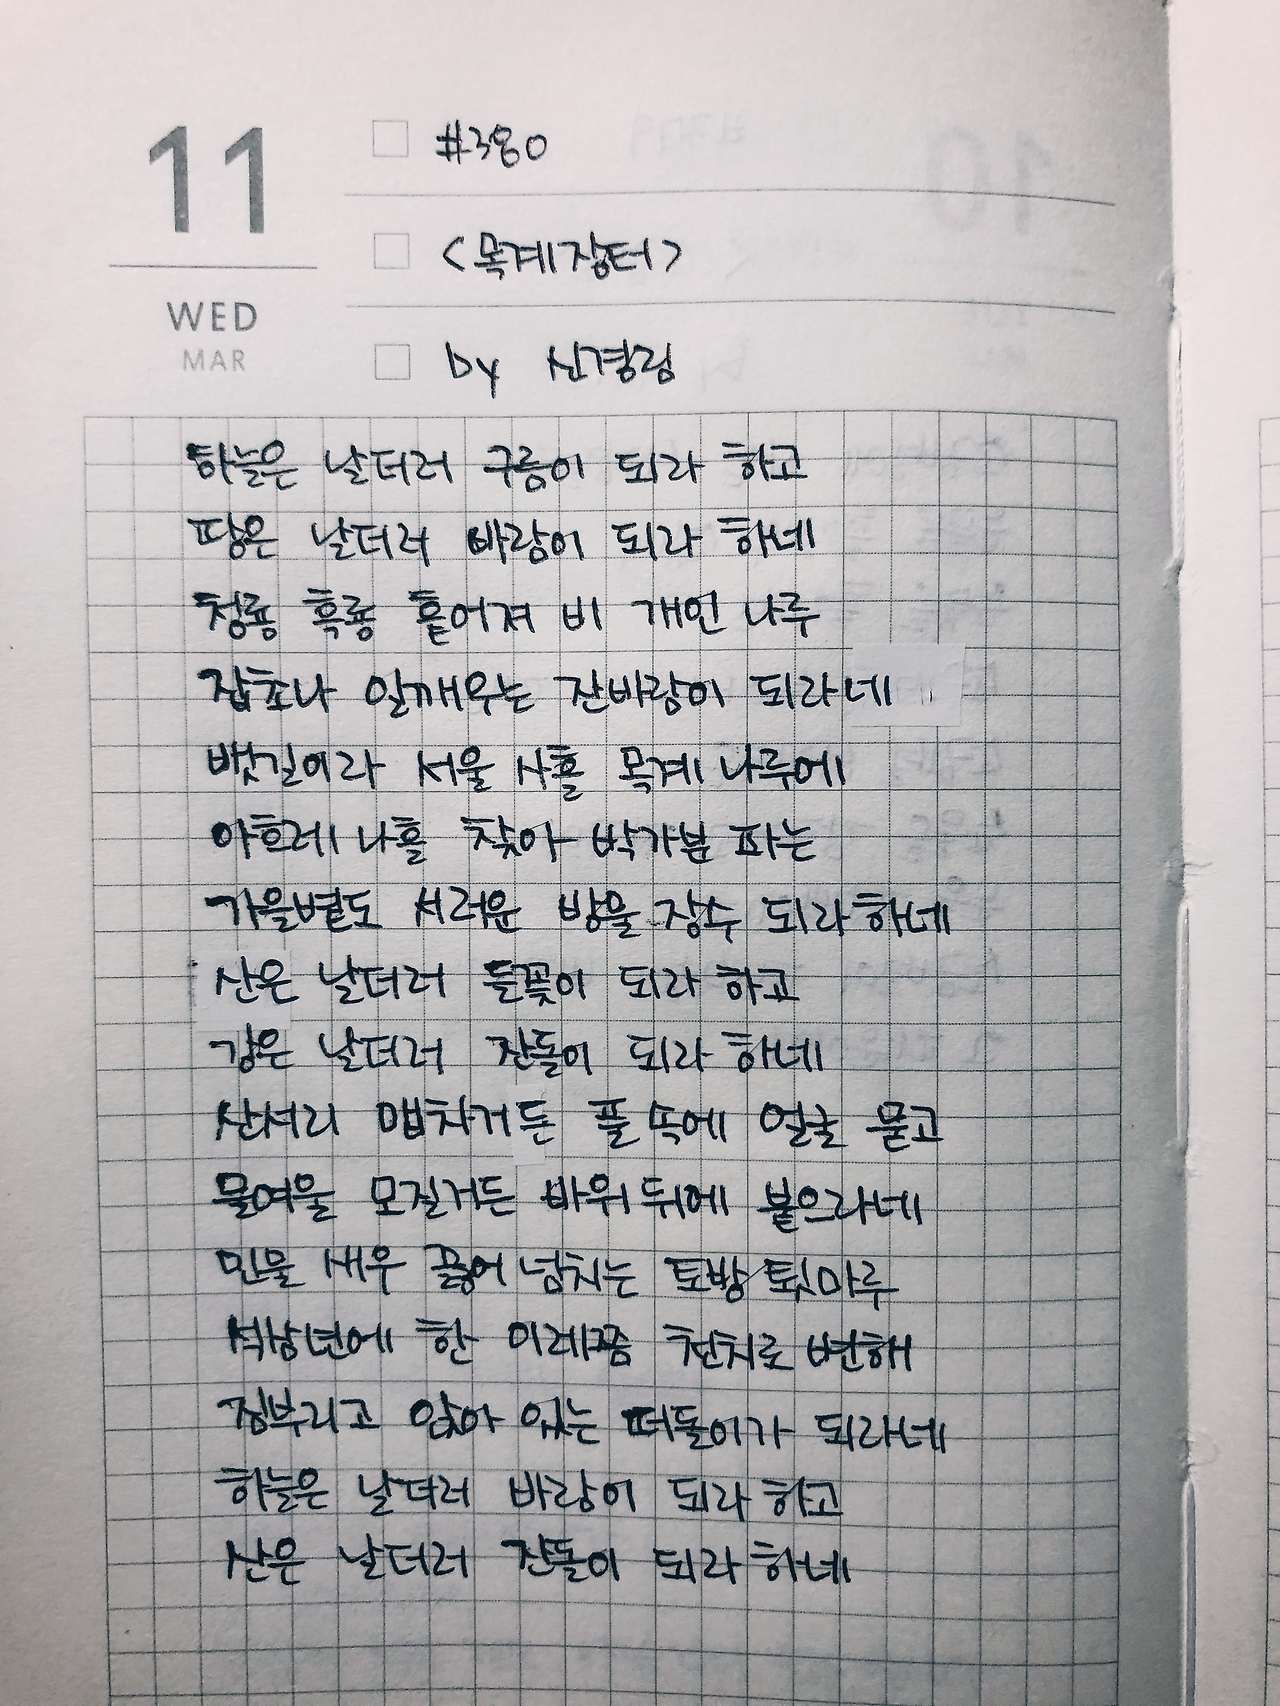 11
WED
MAR
#380
<목계장터>
by 신경림
하늘은 날더러 구름이 되라 하고
땅은 날더러 바람이 되라 하네
청룡 흑룡 흩어져 비 개인 나루
잡초나 일깨우는 잔바람이 되라네
뱃길이라 서울 사흘 목계 나루에
아흐레 나흘 찾아 박가분 파는
가을볕도 서러운 방물 장수 되라 하네
산은 날더러 들꽃이 되라 하고
강은 날더러 잔돌이 되라 하네
산서리 맵차거든 풀 속에 얼굴 묻고
물여울 모질거든 바위 뒤에 붙으라네
민물 새우 끓어 넘치는 토방 툇마루
석삼년에 한 이레쯤 천치로 변해
짐부리고 앉아 있는 떠돌이가 되라네
하늘은 날더러 바람이 되라 하고
산은 날더러 잔돌이 되라 하네